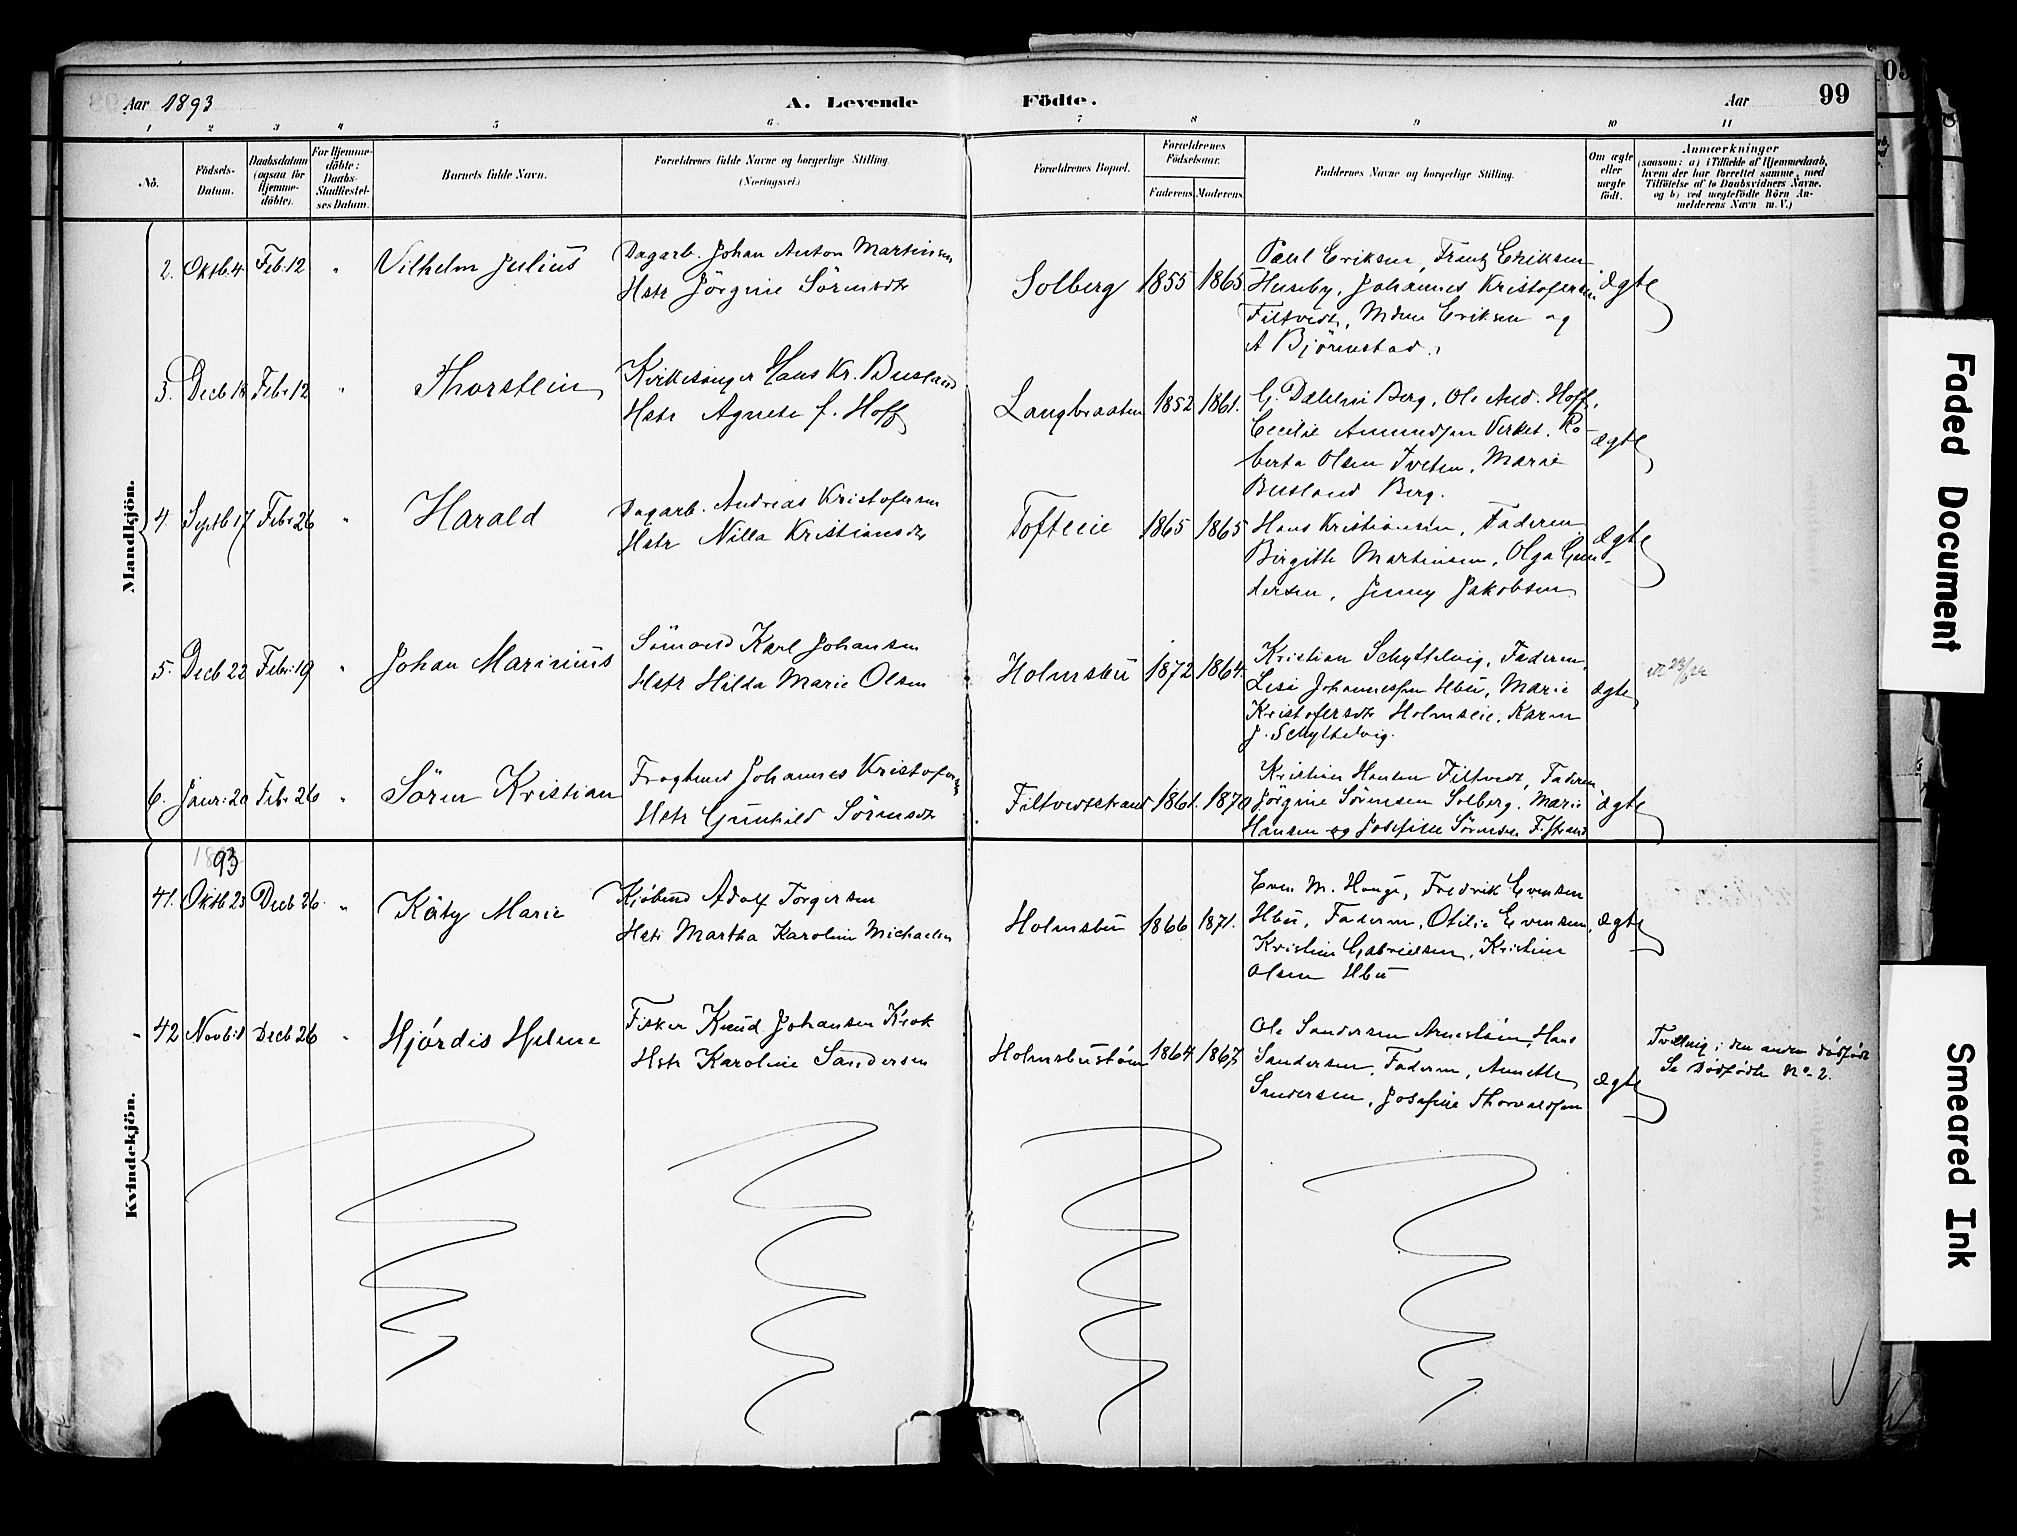 Aar 1893
A. Levende Födte.
Aar
99
1 2 3 4 5 6 7 8 9 10 11
No.
Födsels-Datum.
Daabsdatum (ogsaa for Hjemme-döbte).
For Hjemme-döbte: Daabs-Stadfæstel-ses Datum.
Barnets fulde Navn.
Forældrenes fulde Navne og borgerlige Stilling. (Næringsvei.)
Forældrenes Bopæl.
Forældrenes Födselsaar.
Faderens Moderens
Faddernes Navne og borgerlige Stilling.
Om ægte eller uægte födt.
Anmærkninger
(saasom: a) i Tilfælde af Hjemmedaab, hvem der har forrettet samme, med Tilföielse af to Daabsvidners Navne. og b) ved uægtefödte Börn An-melderens Navn m. V.)
Mandkjön.
2. Oktb. 4 Feb. 12 " Vilhelm Julius
Dagarb. Johan Anton Martinsen
Hstr Jörgine Sörensdr
Solberg 1855 1865
Paul Eriksen, Frantz Eriksen
Huseby, Johannes Kristofersen
Filtvedt, Mdme Eriksen og
A Björnstad.
ægte
3. Decb 18 Feb. 12 " Thorstein
Kirkesanger Hans Kr. Busland
Hstr Agnete f. Hoff
Langbraaten 1852 1861.
Berg, Ole And. Hoff,
Cecilie Amundsen Verket, Ro-
berta Olsen Tveten, Marie
Busland Berg.
ægte
4. Septb 17 Feb. 26 " Harald
Dagarb. Andreas Kristofersen
Hstr Nilla Kristiansdr
Tofteeie 1865 1865
Hans Kristiansen, Faderen
Birgitte Martinsen, Olga Gun-
dersen, Jenny Jakobsen
ægte
5. Decb 22 Feb. 19 " Johan Marinius
Sömand Karl Johansen
Hstr Hilda Marie Olsen
Holmsbu 1872 1864.
Kristian Schyttelvig, Faderen,
Lisa Johannessen Hbu, Marie
Kristofersdr Holmseie, Karen
J. Schyttelvig.
ægte
6. Janr. 20 Feb. 26 " Sören Kristian
Fragtmd Johannes Kristofersen
Hstr Gunhild Sörensdr
Filtvedtstrand 1861. 1870
Kristian Hansen Filtvedt, Faderen
Jörgine Sörensen Solberg, Marie
Hansen og Josefine Sörensen F.strand
ægte
Kvindekjön.
93
41. Oktb 23 Decb 26. " Käty Marie
Kjöbmd Adolf Torgersen
Hstr Martha Karoline Michaelsen
Holmsbu 1866 1871.
Even M. Hauge, Fredrik Evensen
Hbu, Faderen, Otilie Evensen,
Kristine Gabrielsen, Kristine
Olsen Hbu
ægte
42 Novb. 8 Decb 26 " Hjördis Helene
Fisker Knud Johansen Krok
Hstr Karoline Sandersen
Holmsbustöen 1864 1867
Ole Sandersen Arnestöen, Hans
Sandersen, Faderen, Annette
Sandersen, Josefine Thorvaldsen
ægte
Tvilling; den anden dödfödt
Se Dödfödte No 2.
Faded Document
Smeared Ink